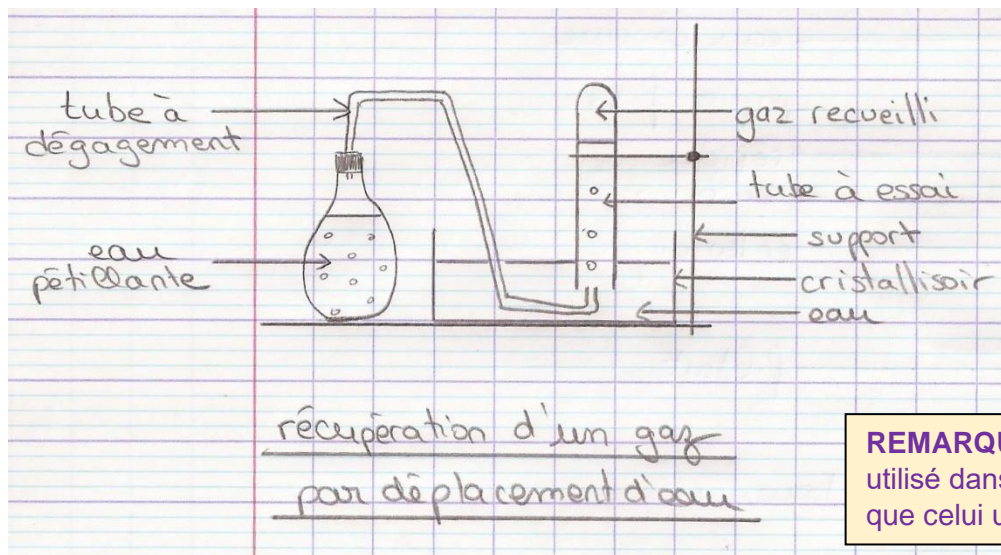 tube à
dégagement
eau
pétillante
gaz recueilli
tube à essai
support
cristallisoir
eau
récupération d'un gaz
par déplacement d'eau
REMARQU
utilisé dans
que celui u